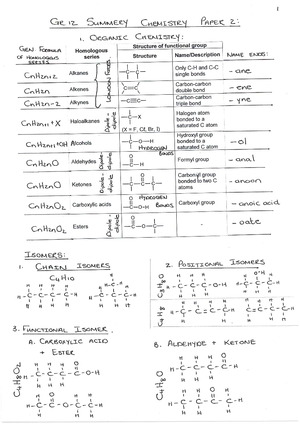 1
GR 12 SUMMERY CHEMISTRY PAPER 2:
1. ORGANIC CHEMISTRY:
GEN. FORMULA OF HOMOLOGOUS SERIES
Homologous series
Structure of functional group
Structure
Name/Description
NAME ENDS:
CnH2n+2
Alkanes
Only C-H and C-C single bonds
- ane
CnH2n
Alkenes
Carbon-carbon double bond
- ene
CnH2n-2
Alkynes
Carbon-carbon triple bond
- yne
LONDON FORCES
CnH2n+1 X
Haloalkanes
Dipole-dipole
(X = F, Cl, Br, I)
Halogen atom bonded to a saturated C atom
CnH2n+1 OH
Alcohols
HYDROGEN BONDS
Hydroxyl group bonded to a saturated C atom
- ol
CnH2nO
Aldehydes
Formyl group
- anal
CnH2nO
Ketones
Dipole-dipole
Carbonyl group bonded to two C atoms
- anoon
CnH2nO2
Carboxylic acids
HYDROGEN BONDS
Carboxyl group
- anoic acid
CnH2nO2
Esters
Dipole-dipole
- oate
ISOMERS:
1. CHAIN ISOMERS
C4H10
2. POSITIONAL ISOMERS
C4H8
3. FUNCTIONAL ISOMER
A. CARBOXYLIC ACID + ESTER
C4H8O2
B. ALDEHYDE + KETONE
C4H8O